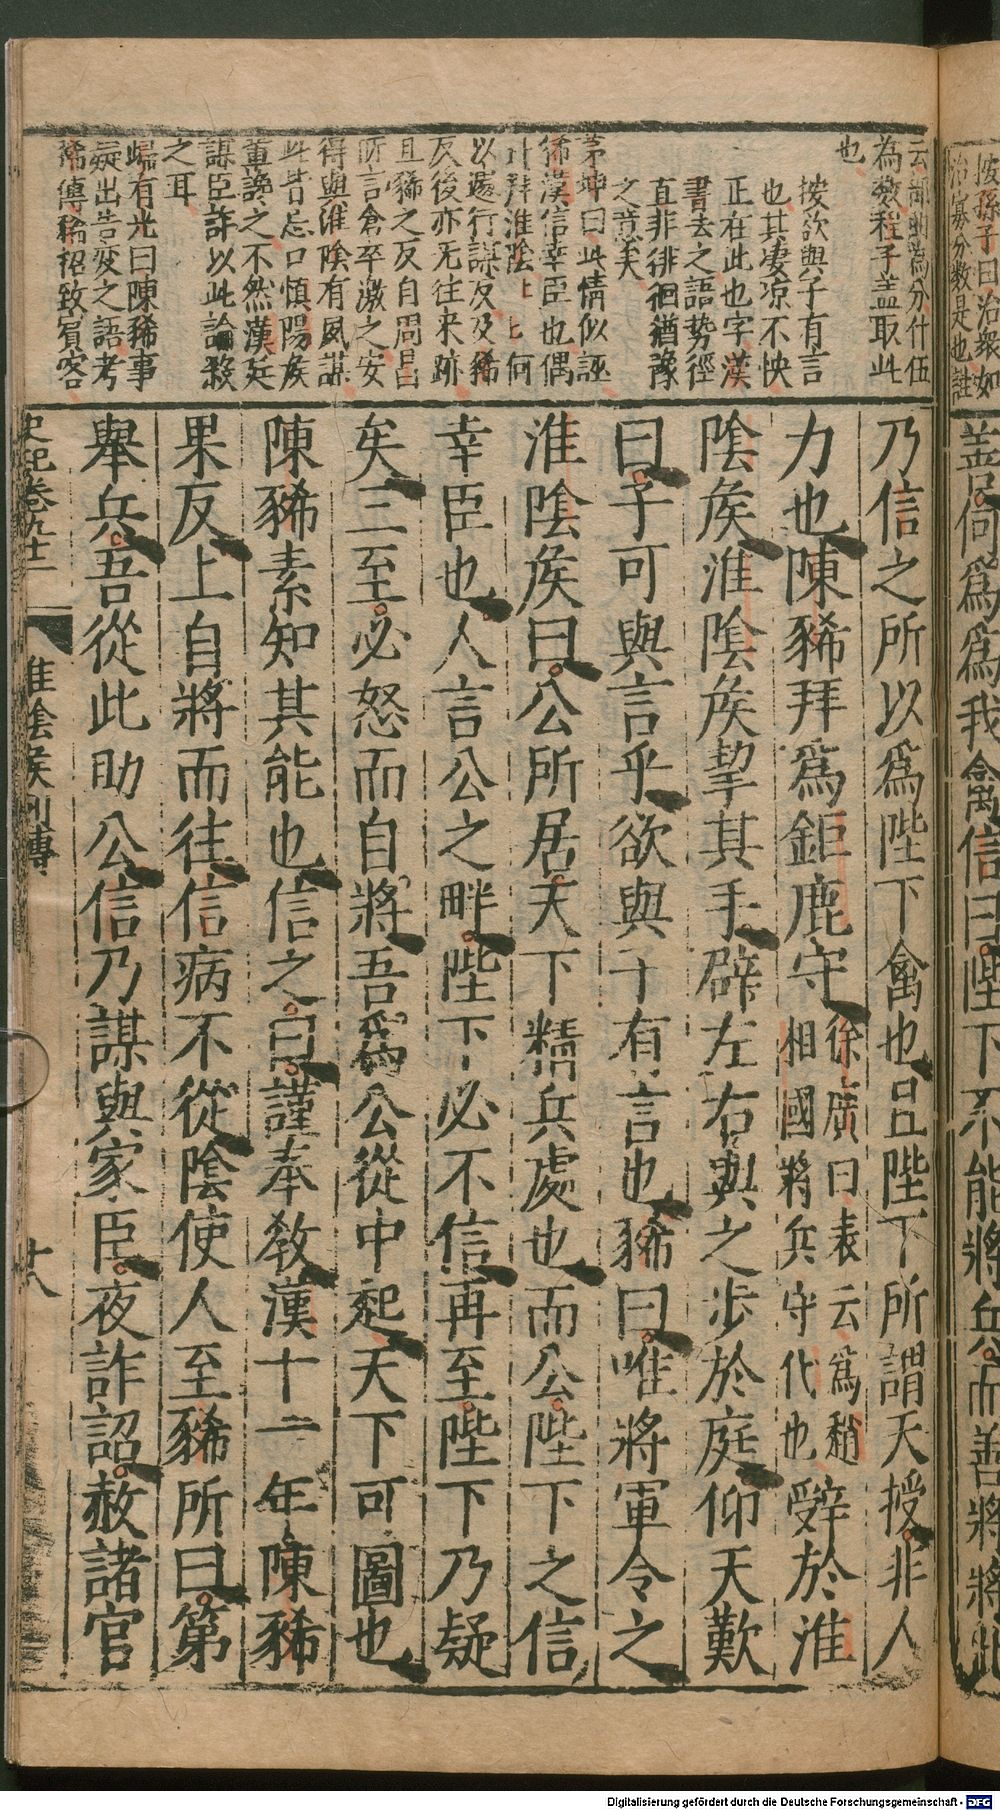 云部曲為分什伍
為數程子蓋取此
也
按欲與子有言
也其凄凉不怏
正在此也字漢
書去之語勢徑
直非徘徊猶豫
之意矣
茅坤曰此情似誣
豨漢信幸臣也偶
過拜淮陰 何
以遽行謀反及豨
反後亦无往來跡
且豨之反自周昌
所言倉卒激之安
得與淮陰有夙謀
此皆忌口慎陽矦
輩譊之不然漢廷
謀臣詐以此論殺
之耳
歸有光曰陳豨事
疑出告変之語考
豨傳豨招致賔客
乃信之所以爲陛下禽也且陛下所謂天授非人
力也陳豨拜爲鉅鹿守徐廣曰表云爲趙相國將兵守代也辤於淮
陰矦淮陰矦挈其手辟左右與之步於庭仰天歎
曰子可與言乎欲與子有言也豨曰唯將軍令之
淮陰矦曰公所居天下精兵處也而公陛下之信
幸臣也人言公之畔陛下必不信再至陛下乃疑
矣三至必怒而自將吾爲公從中起天下可圖也
陳豨素知其能也信之曰謹奉敎漢十一年陳豨
果反上自將而往信病不從陰使人至豨所曰第
舉兵吾從此助公信乃謀與家臣夜詐詔赦諸官
史記卷九十二 淮陰矦列傳 廿八
按孫子曰治衆如
治寡分数是也註
善何爲爲我禽信曰陛下不能將兵而善將將此
Digitalisierung gefördert durch die Deutsche Forschungsgemeinschaft - DFG